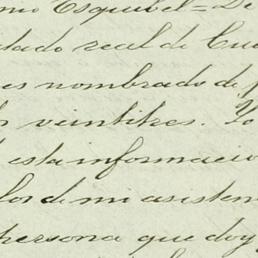 Esquibel = De
real de
es nombrado de
veintitres. Yo
esta informacio
de mi asisten
persona que doy